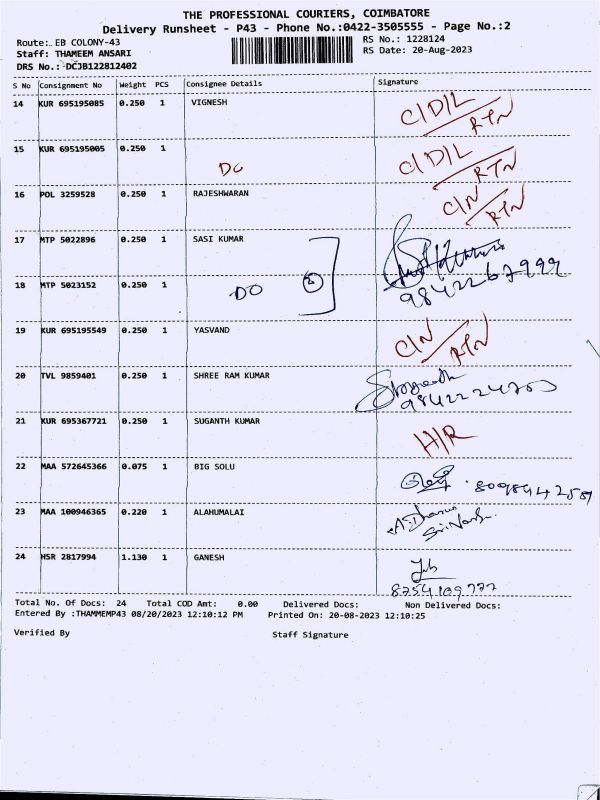 THE PROFESSIONAL COURIERS, COIMBATORE
Delivery Runsheet - P43 - Phone No.:0422-3505555 - Page No.:2
Route: EB COLONY-43
RS No.: 1228124
Staff: THAMEEM ANSARI
RS Date: 20-Aug-2023
DRS No.: DCJB122812402
S No Consignment No Weight PCS Consignee Details Signature
14 KUR 695195085 0.250 1 VIGNESH C/D/L RTN
15 KUR 695195005 0.250 1 DO C/D/L RTN
16 POL 3259528 0.250 1 RAJESHWARAN C/N RTN
17 MTP 5022896 0.250 1 SASI KUMAR
18 MTP 5023152 0.250 1 DO 2 9842267999
19 KUR 695195549 0.250 1 YASVAND C/N RTN
20 TVL 9859401 0.250 1 SHREE RAM KUMAR
21 KUR 695367721 0.250 1 SUGANTH KUMAR H/R
22 MAA 572645366 0.075 1 BIG SOLU
23 MAA 100946365 0.220 1 ALAHUMALAI
24 HSR 2817994 1.130 1 GANESH
8754109777
Total No. Of Docs: 24 Total COD Amt: 0.00 Delivered Docs: Non Delivered Docs:
Entered By :THAMMEMP43 08/20/2023 12:10:12 PM Printed On: 20-08-2023 12:10:25
Verified By Staff Signature